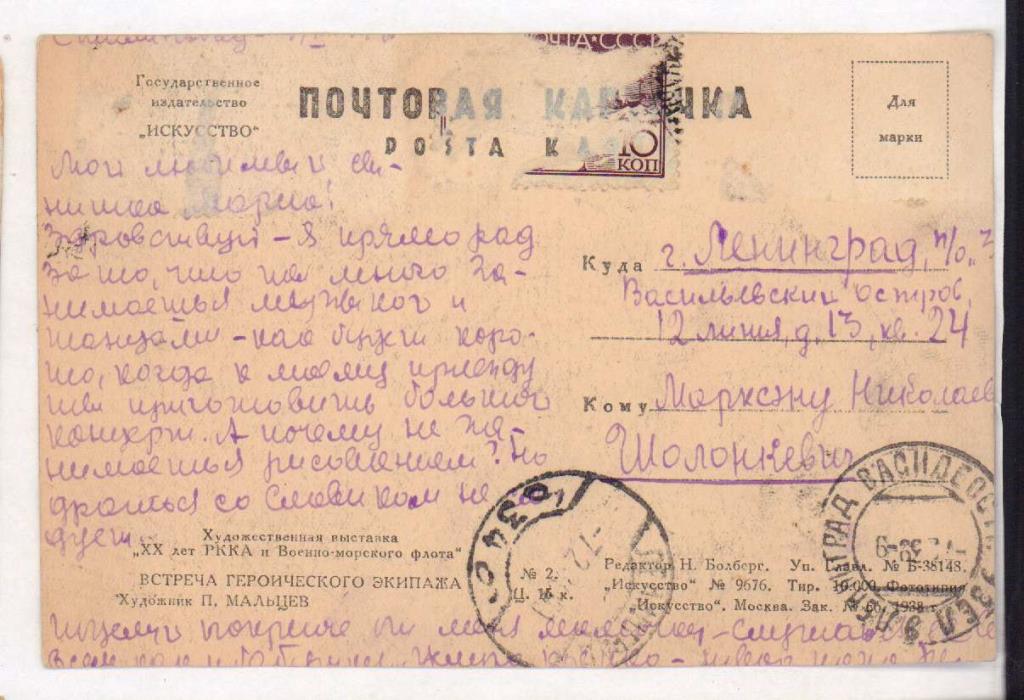 Государственное
издательство
„ИСКУССТВО“
ПОЧТОВАЯ КАРТОЧКА
POŜTA
ПОЧТА СССР
10
КОП
Для
марки
Мой любимый сы-
нишка Марка!
Здравствуй – Я прямо рад
за то, что ты много за-
нимаешься музыкой и
танцами – как будет хоро-
шо, когда к моему приезду
ты приготовишь большой
концерт. А почему не за-
нимаешься рисованием? Но
драться со Славиком не
Куда г. Ленинград, п/о.
Васильевский остров,
12 линия, д. 13, кв. 24
Кому Марксэну Николаев
Шолонкевич
Художественная выставка
"XX лет РККА и Военно-морского флота"
ВСТРЕЧА ГЕРОИЧЕСКОГО ЭКИПАЖА
Художник П. МАЛЬЦЕВ
№ 2.
Ц. 15 к.
Редактор Н. Болберг. Уп. Главл. № Б-38148.
"Искусство" № 9676. Тир. 10.000. Фототипия
"Искусство". Москва. Зак. № 66, 1938 г.
ЛЕНИНГРАД
Поцелуй покрепче за меня мамочку – слушайся